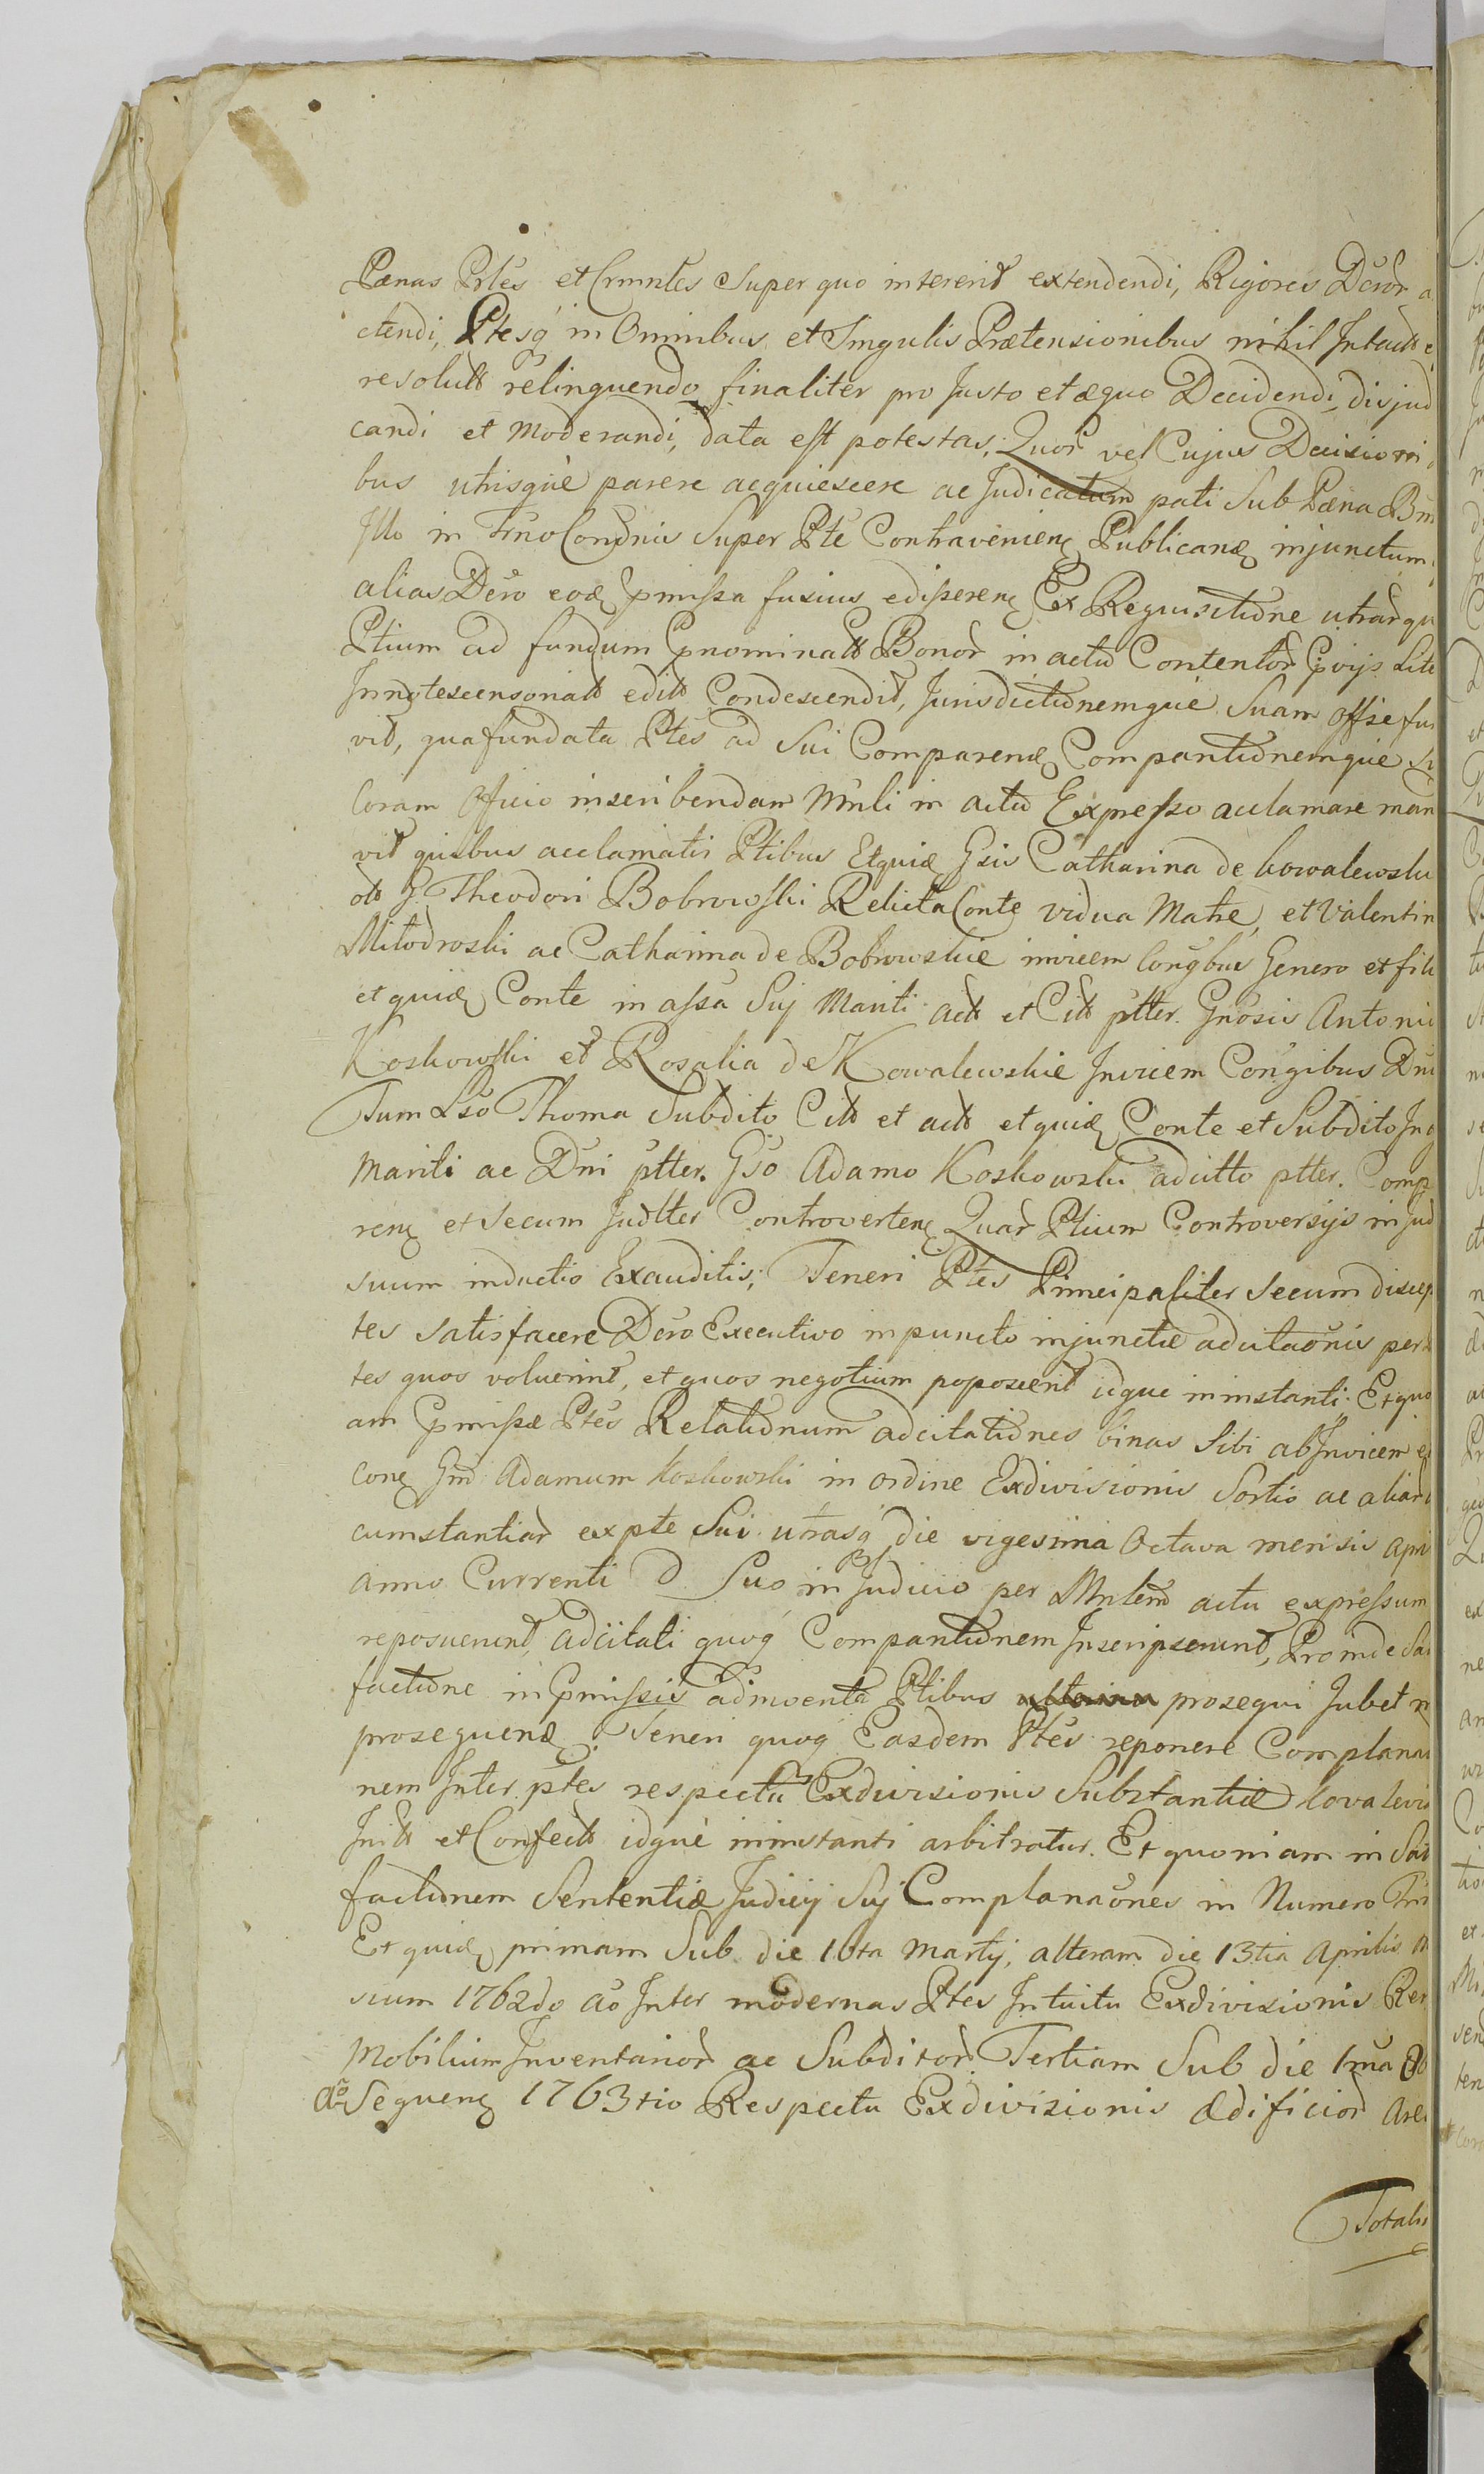 Pænas Prtes et Crmnles Super quo intererit extendendi, Rigores Dcror a
ctendi, Ptesq in Omnibus et Singulis Prætensionibus nihil Intactt e
resolutt relinquendo finaliter pro Justo et æquo Decidendi, disjud
candi et Moderandi, data est potestas, Quor vel Cujus Decisioni
bus utrisque parere acquiescere ac Judicatum pati Sub Pæna Bni
Illo in Trno Condnis Super Pte Contravenien Publicand injunctum
alias Dcro eod pmissa fusius edisseren Ex Requisitione utrarqu
Ptium ad fundum pnominatt Bonor in actu Contentor pvijs Lite
Innotescensorialt editt Condescendit, Jurisdictionemque Suam Offse fun
vit, qua fundata Ptes ad Sui Comparend Compartionemque Su
Coram Officio inscribendam Mnli in actu Expresso acclamare man
vit quibus acclamatis Ptibus Etquid Gsis Catharina de Kowalewski
olt G. Theodori Bobrowski Relicta Conte vidua Matre, et Valentin
Mitodroski ac Catharina de Bobrowskie invicem Congbus Genero et fili
et quid Conte in assa Suj Mariti actt et Citt ptter. Gnosis Antonio
Koskowski et Rosalia de Kowalewskie Invicem Congibus Dni
Tum Lso Thoma Subdito Citt et actt et quid Conte et Subdito In
Mariti ac Dni ptter. Gso Adamo Koskowski adcitto ptter. Comp
ren et Secum Judlter Controverten Quar Ptium Controversijs in Jud
suum inductis Exauditis, Teneri Ptes Principaliter Secum discep
tes satisfacere Dcro Executivo in puncto injunctæ adcitaonis per
tes quos voluerint, et quos negotium poposcerit idque in instanti. Etquo
am pmissæ Ptes Relationum adcitationes binas Sibi ab Invicem e
con Gm Adamum Koskowski in ordine Exdivisionis Sortis ac aliar
cumstantiar ex pte Sui utrasq die vigesima Octava mensis Apri
anno Currenti D Suo in Judicio per Mnlem actu expressum
reposuerunt, adcitati quoq Compartionem Inscripserunt, Proinde Sa
factione in pmissis adinventa Ptibus prosequi Jubet
prosequend. Teneri quoq Easdem Ptes reponere Complana
nem Inter ptes respectu Exdivisionis Substantiæ Kovalevi
Initt et Confectt idque in instanti arbitratur. Et quoniam in Sat
factionem Sententiæ Judicij Suj Complanaones in Numero Tri
Et quid primam Sub die 16ta Martij, alteram die 13tia Aprilis
sium 1762do ao Inter modernas Ptes Intuitu Exdivisionis Rer
Mobilium Inventarior ac Subditor Tertiam Sub die 1ma
ao Sequen 1763tio Respectu Exdivisionis Ædificior Are
Totali